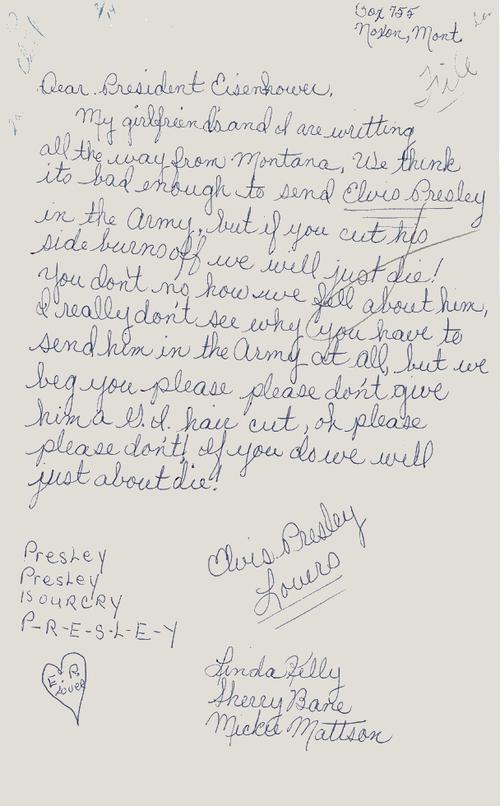 Box 755
Noxon, Mont
File
Dear President Eisenhower,
My girlfriend's and I are writting
all the way from Montana, We think
its bad enough to send Elvis Presley
in the Army, but if you cut his
side burns off we will just die!
You don't no how we fell about him,
I really don't see why you have to
send him in the Army at all, but we
beg you please please don't give
him a G.I. hair cut, oh please
please don't! If you do we will
just about die!
Elvis Presley
Lovers
Presley
Presley
IS OUR CRY
P-R-E-S-L-E-Y
E.P.
LOVER
Linda Kelly
Sherry Bane
Mickie Mattson